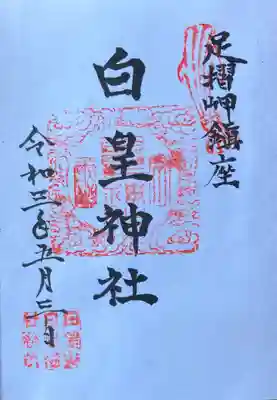 足摺岬鎮座
白皇神社
令和三年五月三日